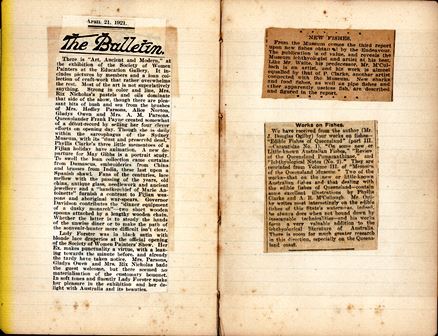 APRIL 21, 1921.
The Bulletin.
There is "Art, Ancient and Modern," at
the exhibition of the Society of Women
Painters at the Education Gallery. It in-
cludes pictures by members and a loan col-
lection of craftwork that rather overwhelms
the rest. Most of the art is not superlatively
anything. Strong in color and line, Mrs.
Rix Nicholas's pastels and oils dominate
that side of the show, though there are pleas-
ant bits of bush and sea from the brushes
of Mrs. Hedley Parsons, Alice Norton,
Gladys Owen and Mrs. A. M. Parsons.
Queenslander Frank Payne created somewhat
of a début-record by selling her four things
on opening day. Though she is daily
within the sarcophagus of the Sydney
Museum, with its "dust and preserved dead,"
Phyllis Clarke's three little mementoes of a
Fijian holiday have exhilaration. A new de-
parture for May Gibbs is a portrait study.
To swell the loan collection came curtains
from Damascus, embroideries from China
and brasses from India, these last upon a
Spanish shawl. Fans of the centuries, lace
mellow with the passing of the years, old
china, antique glass, needlework and ancient
jewellery and a "handkerchief of Marie An-
toinette" furnish a contrast to Fijian wea-
pons and aboriginal war-spears. Governor
Davidson contributes the "dinner equipment
of a dusky monarch"—two shallow wooden
spoons attached by a lengthy wooden chain.
Whether the latter is to study the hands
of the unwise diner or to make the pace of
the souvenir-hunter more difficult isn't clear.
Lady Forster was in black satin with
blonde lace draperies at the official opening
of the Society of Women Painters' Show. Her
Ex. makes punctuality a virtue, with a lean-
ing towards the minute before, and already
the tardy have taken notice. Mrs. Parsons,
Gladys Owen and Mrs. Rix Nicholas bade
the guest welcome, but there seemed no
materialisation of the customary bouquet.
In soft tones and fluently Lady Forster spoke
her pleasure in the exhibition and her de-
light with Australia and its beauties.
NEW FISHES.
From the Museum comes the third report
upon new fishes obtained by the Endeavour.
The publication is of value, and reveals the
Museum ichthyologist and artist at his best.
Like Mr. Waite, his predecessor, Mr. McCul-
loch is an artist, and his work is almost
equalled by that of P. Clarke, another artist
connected with the Museum. New sharks
and (sad to relate, as well as pipe fishes and
other apparently useless fish), are described
and figured in the report.
Works on Fishes.
We have received from the author (Mr.
J. Douglas Ogilby) four works on fishes—
"Edible Fishes of Queensland" (part III,
Carangidæ No. 1), "On some new or
little-known Australian Fishes,"
of the Queensland Pomacanthinæ," and
"Ichthyological Notes (No. 1)." They are
reprinted from Volume III. of "Memoirs
of the Queensland Museum." Two of the
works—that on the new or little-known
Australian fishes and that dealing with
the edible fishes of Queensland—contain
some excellent illustrations by Phyllis
Clarke and A. R. McCulloch. Mr. Ogil-
by writes most interestingly on the edible
fishes of this State's waters—as, indeed,
he always does when not bound down by
inexorable technicalities—and his works
form a very valuable addition to the
ichthyological literature of Australia.
There is room for much greater research
in this direction, especially on the Queens-
land coast.